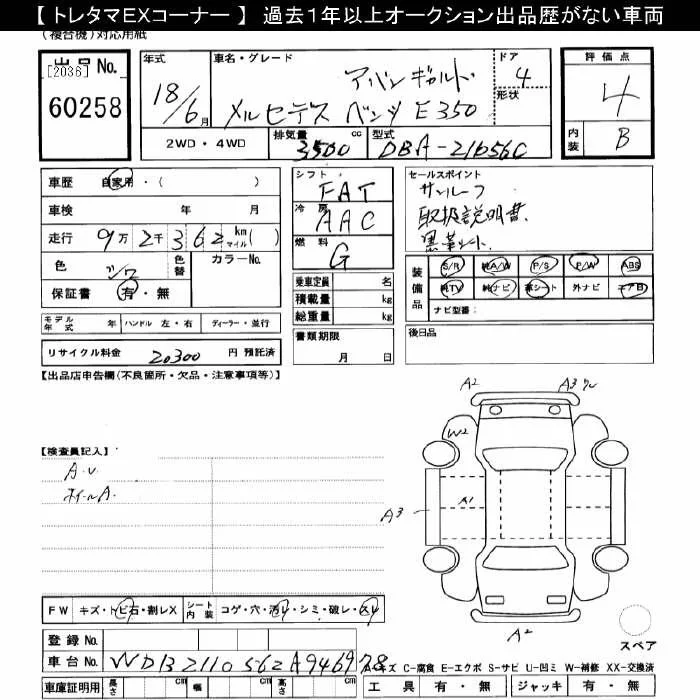 【 トレタマEXコーナー 】 過去１年以上オークション出品歴がない車両
(複合機)対応用紙
出品No.
[2036]
60258
年式
18/6月
車名・グレード
アバンギャルド
メルセデス ベンツ E350
ドア
4
形状
評価点
4
内装
B
2WD・4WD
排気量
3500 cc
型式
DBA-211056C
車歴 自家用・( )
車検 年 月
走行 9万 2千 3 6 2 km マイル ( )
色
色替
カラーNo.
保証書 有・無
シフト
FAT
冷房
AAC
燃料
G
乗車定員 名
積載量 kg
総重量 kg
書類期限
月 日
セールスポイント
サンルーフ
取扱説明書
黒革シート
装備品
S/R 純A/W P/S P/W ABS
純TV 純ナビ 革シート 外ナビ エアB
ナビ型番:
後日品
モデル年式 年 ハンドル 左・右 ディーラー・並行
リサイクル料金 20300 円 預託済
【出品店申告欄(不良箇所・欠品・注意事項等)】
【検査員記入】
A.U
ホイールA.
A2
A3
W2
A1
A3
A2
スペア
FW キズ・トビ石・割レX シート内装 コゲ・穴・汚レ・シミ・破レ・スレ
登録No.
車台No. WDB2110562A946978
A-キズ C-腐食 E-エクボ S-サビ U-凹ミ W-補修 XX-交換済
車庫証明用 長さ cm 幅 cm 高さ cm
工具 有・無 ジャッキ 有・無